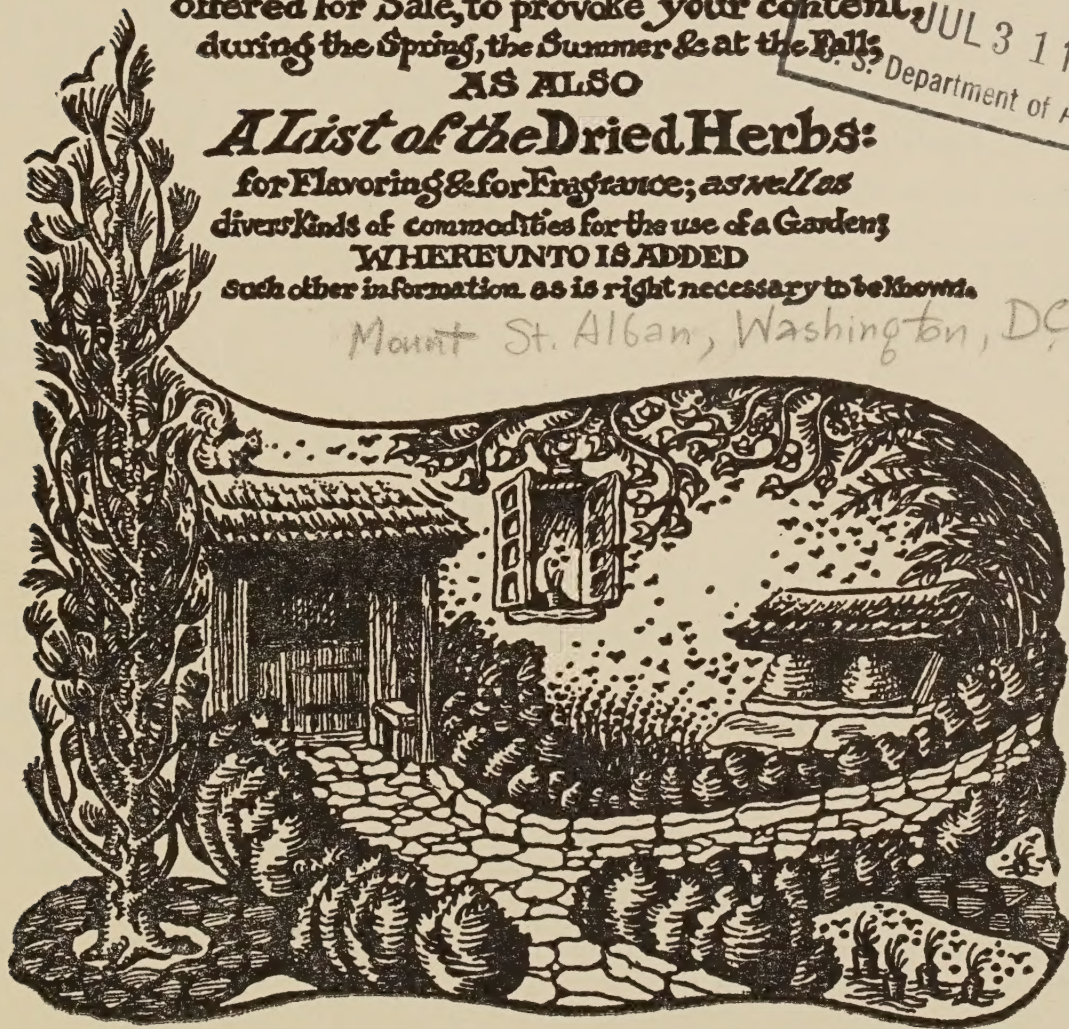 offered for Sale, to provoke your content,
during the Spring, the Summer & at the Fall;
AS ALSO
A List of the Dried Herbs:
for Flavoring & for Fragrance; as well as
divers Kinds of commodities for the use of a Garden;
WHEREUNTO IS ADDED
such other information as is right necessary to be known.
JUL 3 1
U. S. Department of A
Mount St. Alban, Washington, DC